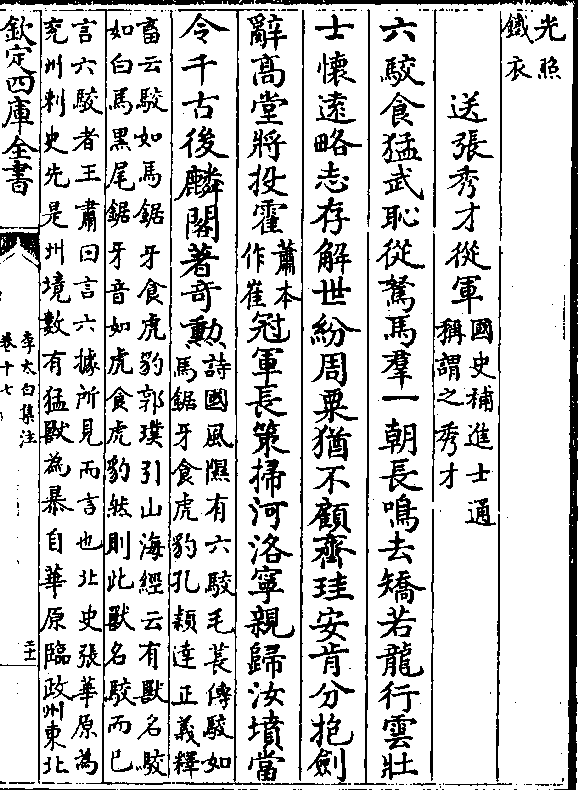 光照
鐵衣
送張秀才從軍國史補進士通
稱謂之秀才
六駮食猛武恥從駑馬羣一朝長鳴去矯若龍行雲壯
士懷遠略志存解世紛周粟猶不顧齊珪安肯分抱劍
辭高堂將投霍蕭本
作崔冠軍長策掃河洛寧親歸汝墳當
令千古後麟閣著奇勲詩國風隰有六駮毛萇傳駮如
馬鋸牙食虎豹孔穎達正義釋
畜云駮如馬鋸牙食虎豹郭璞引山海經云有獸名駮
如白馬黑尾鋸牙音如虎食虎豹然則此獸名駮而已
言六駮者王肅曰言六據所見而言也北史張華原為
兖州刺史先是州境數有猛獸為暴自華原臨政州東北
欽定四庫全書
李太白集注
卷十七